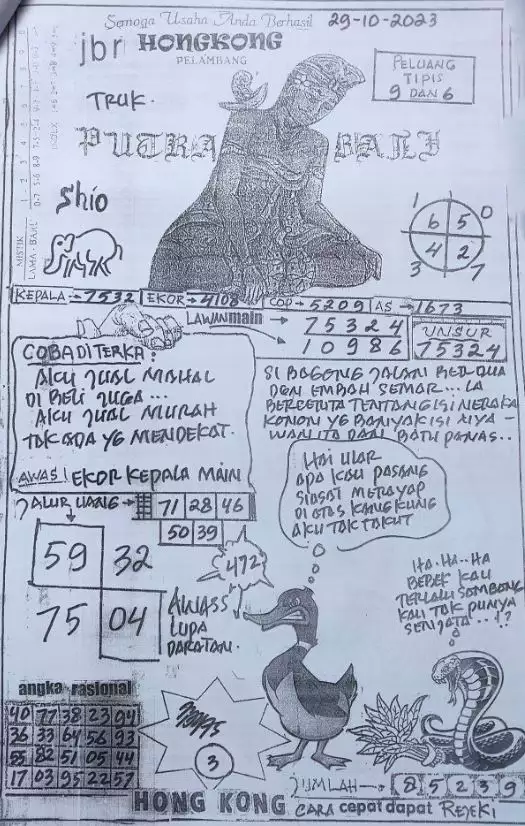 Semoga Usaha Anda Berhasil
29-10-2023
jbr HONGKONG
PELAMBANG
PELUANG
TIPIS
9 DAN 6
TRUK.
PUTRA BALI
Shio
1 0
6 5
4 2
3 7
MISTIK
LAMA - BARU
KEPALA → 7532 EKOR → 4108 COP → 5209 AS → 1673
LAWAN main → 75324
10986
UNSUR
75324
COBA DITERKA:
AKU JUAL MAHAL
DI BELI JUGA...
AKU JUAL MURAH
TAK ADA YG MENDEKAT.
AWAS! EKOR KEPALA MAIN
SI BAGONG JALAN BERDUA
DGN EMBAH SEMAR... LA
BERCERITA TENTANG ISI NERAKA
KONON YG BANYAK ISI NYA -
WANITA DAN BATU PANAS..
JALUR UANG → 71 28 46
50 39
HAI ULAR
APA KAU PASANG
SIASAT MERAYAP
DI ATAS KANGKUNG
AKU TAK TAKUT
59 32
75 04
472
AWASS
LUPA
DARATAN.
HA.HA..HA
BEBEK KAU
TERLALU SOMBONG
KAU TAK PUNYA
SENJATA...!?
angka rasional
40 77 38 23 94
36 33 64 56 93
55 82 51 05 44
17 03 95 22 57
3
JUMLAH → 8 5 2 3 9
HONG KONG CARA cepat dapat REJEKI